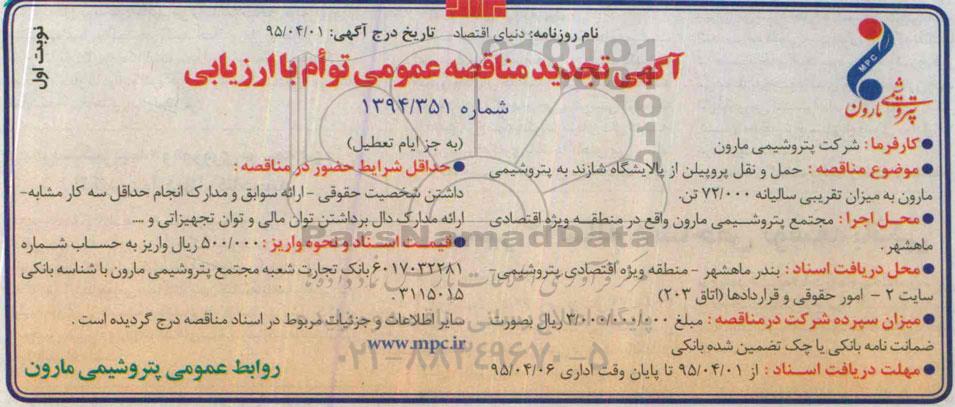 نام روزنامه: دنیای اقتصاد تاریخ درج آگهی: ۹۵/۰۴/۰۱
نوبت اول
آگهی تجدید مناقصه عمومی توأم با ارزیابی
شماره ۱۳۹۴/۳۵۱
MPC
پتروشیمی مارون
● کارفرما: شرکت پتروشیمی مارون
● موضوع مناقصه: حمل و نقل پروپیلن از پالایشگاه شازند به پتروشیمی
مارون به میزان تقریبی سالیانه ۷۲/۰۰۰ تن.
● محل اجرا: مجتمع پتروشیمی مارون واقع در منطقه ویژه اقتصادی
ماهشهر.
● محل دریافت اسناد: بندر ماهشهر - منطقه ویژه اقتصادی پتروشیمی-
سایت ۲ - امور حقوقی و قراردادها (اتاق ۲۰۳)
● میزان سپرده شرکت در مناقصه: مبلغ ۳/۰۰۰/۰۰۰/۰۰۰ ریال بصورت
ضمانت نامه بانکی یا چک تضمین شده بانکی
● مهلت دریافت اسناد: از ۹۵/۰۴/۰۱ تا پایان وقت اداری ۹۵/۰۴/۰۶
(به جز ایام تعطیل)
● حداقل شرایط حضور در مناقصه:
داشتن شخصیت حقوقی - ارائه سوابق و مدارک انجام حداقل سه کار مشابه-
ارائه مدارک دال برداشتن توان مالی و توان تجهیزاتی و ....
● قیمت اسناد و نحوه واریز: ۵۰۰/۰۰۰ ریال واریز به حساب شماره
۶۰۱۷۰۳۲۲۸۱ بانک تجارت شعبه مجتمع پتروشیمی مارون با شناسه بانکی
۳۱۱۵۰۱۵.
سایر اطلاعات و جزئیات مربوط در اسناد مناقصه درج گردیده است.
www.mpc.ir
روابط عمومی پتروشیمی مارون
ParsNamadData
۰۲۱-۸۸۳۴۹۶۷۰-۵